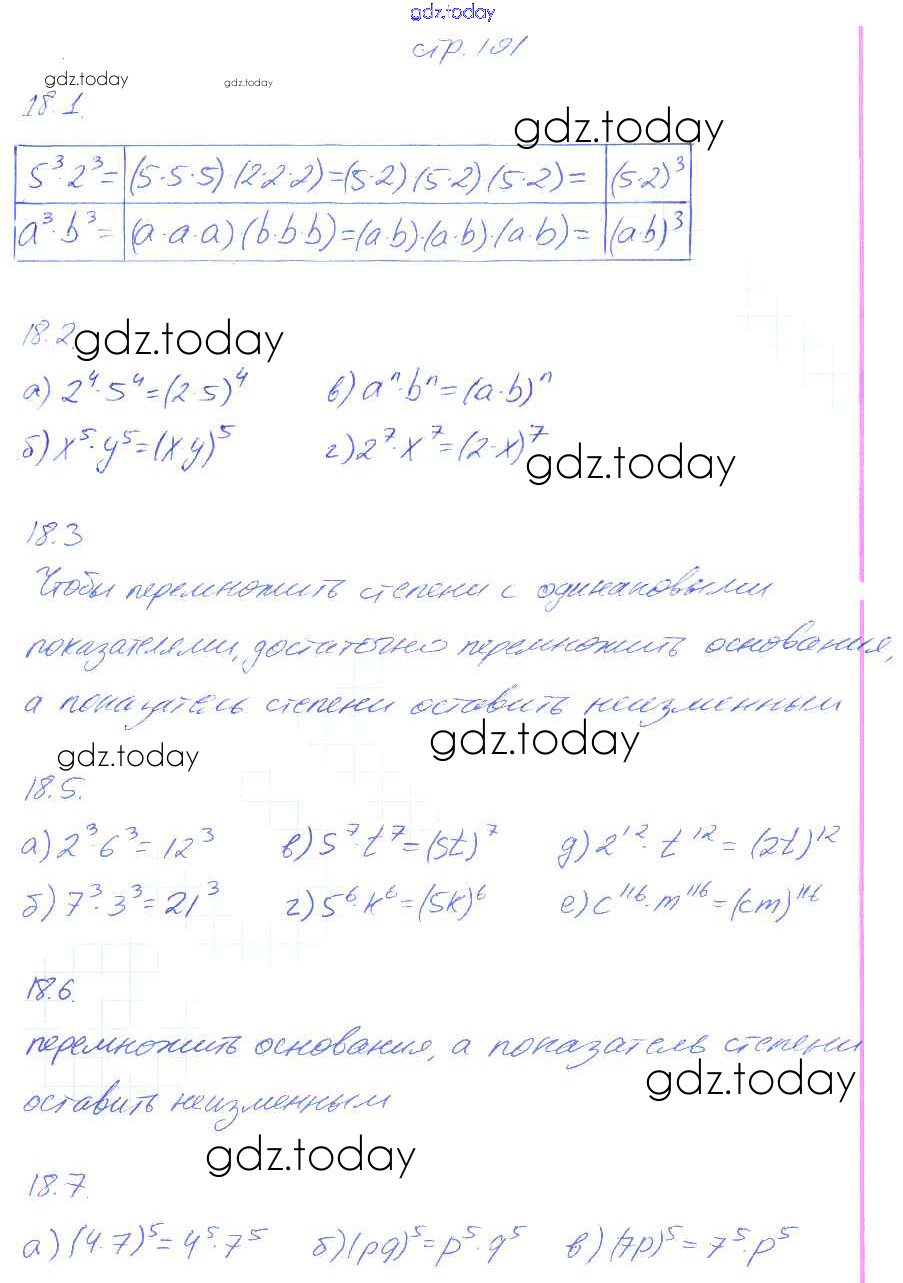 gdz.today
стр. 101
gdz.today gdz.today
18.1.
gdz.today
5³·2³= (5·5·5)·(2·2·2)=(5·2)(5·2)(5·2)= (5·2)³
a³·b³= (a·a·a)(b·b·b)=(a·b)·(a·b)·(a·b)= (a·b)³
18.2 gdz.today
а) 2⁴·5⁴=(2·5)⁴ в) aⁿ·bⁿ=(a·b)ⁿ
б) x⁵·y⁵=(x·y)⁵ г) 2⁷·x⁷=(2·x)⁷
gdz.today
18.3
Чтобы перемножить степени с одинаковыми
показателями, достаточно перемножить основания,
а показатель степени оставить неизменным
gdz.today gdz.today
18.5.
а) 2³·6³=12³ в) 5⁷·t⁷=(5t)⁷ д) 2¹²·t¹²=(2t)¹²
б) 7³·3³=21³ г) 5⁶·k⁶=(5k)⁶ е) c¹¹⁶·m¹¹⁶=(cm)¹¹⁶
18.6.
перемножить основания, а показатель степени
gdz.today
оставить неизменным
gdz.today
18.7.
а) (4·7)⁵=4⁵·7⁵ б) (pq)⁵=p⁵·q⁵ в) (7p)⁵=7⁵·p⁵